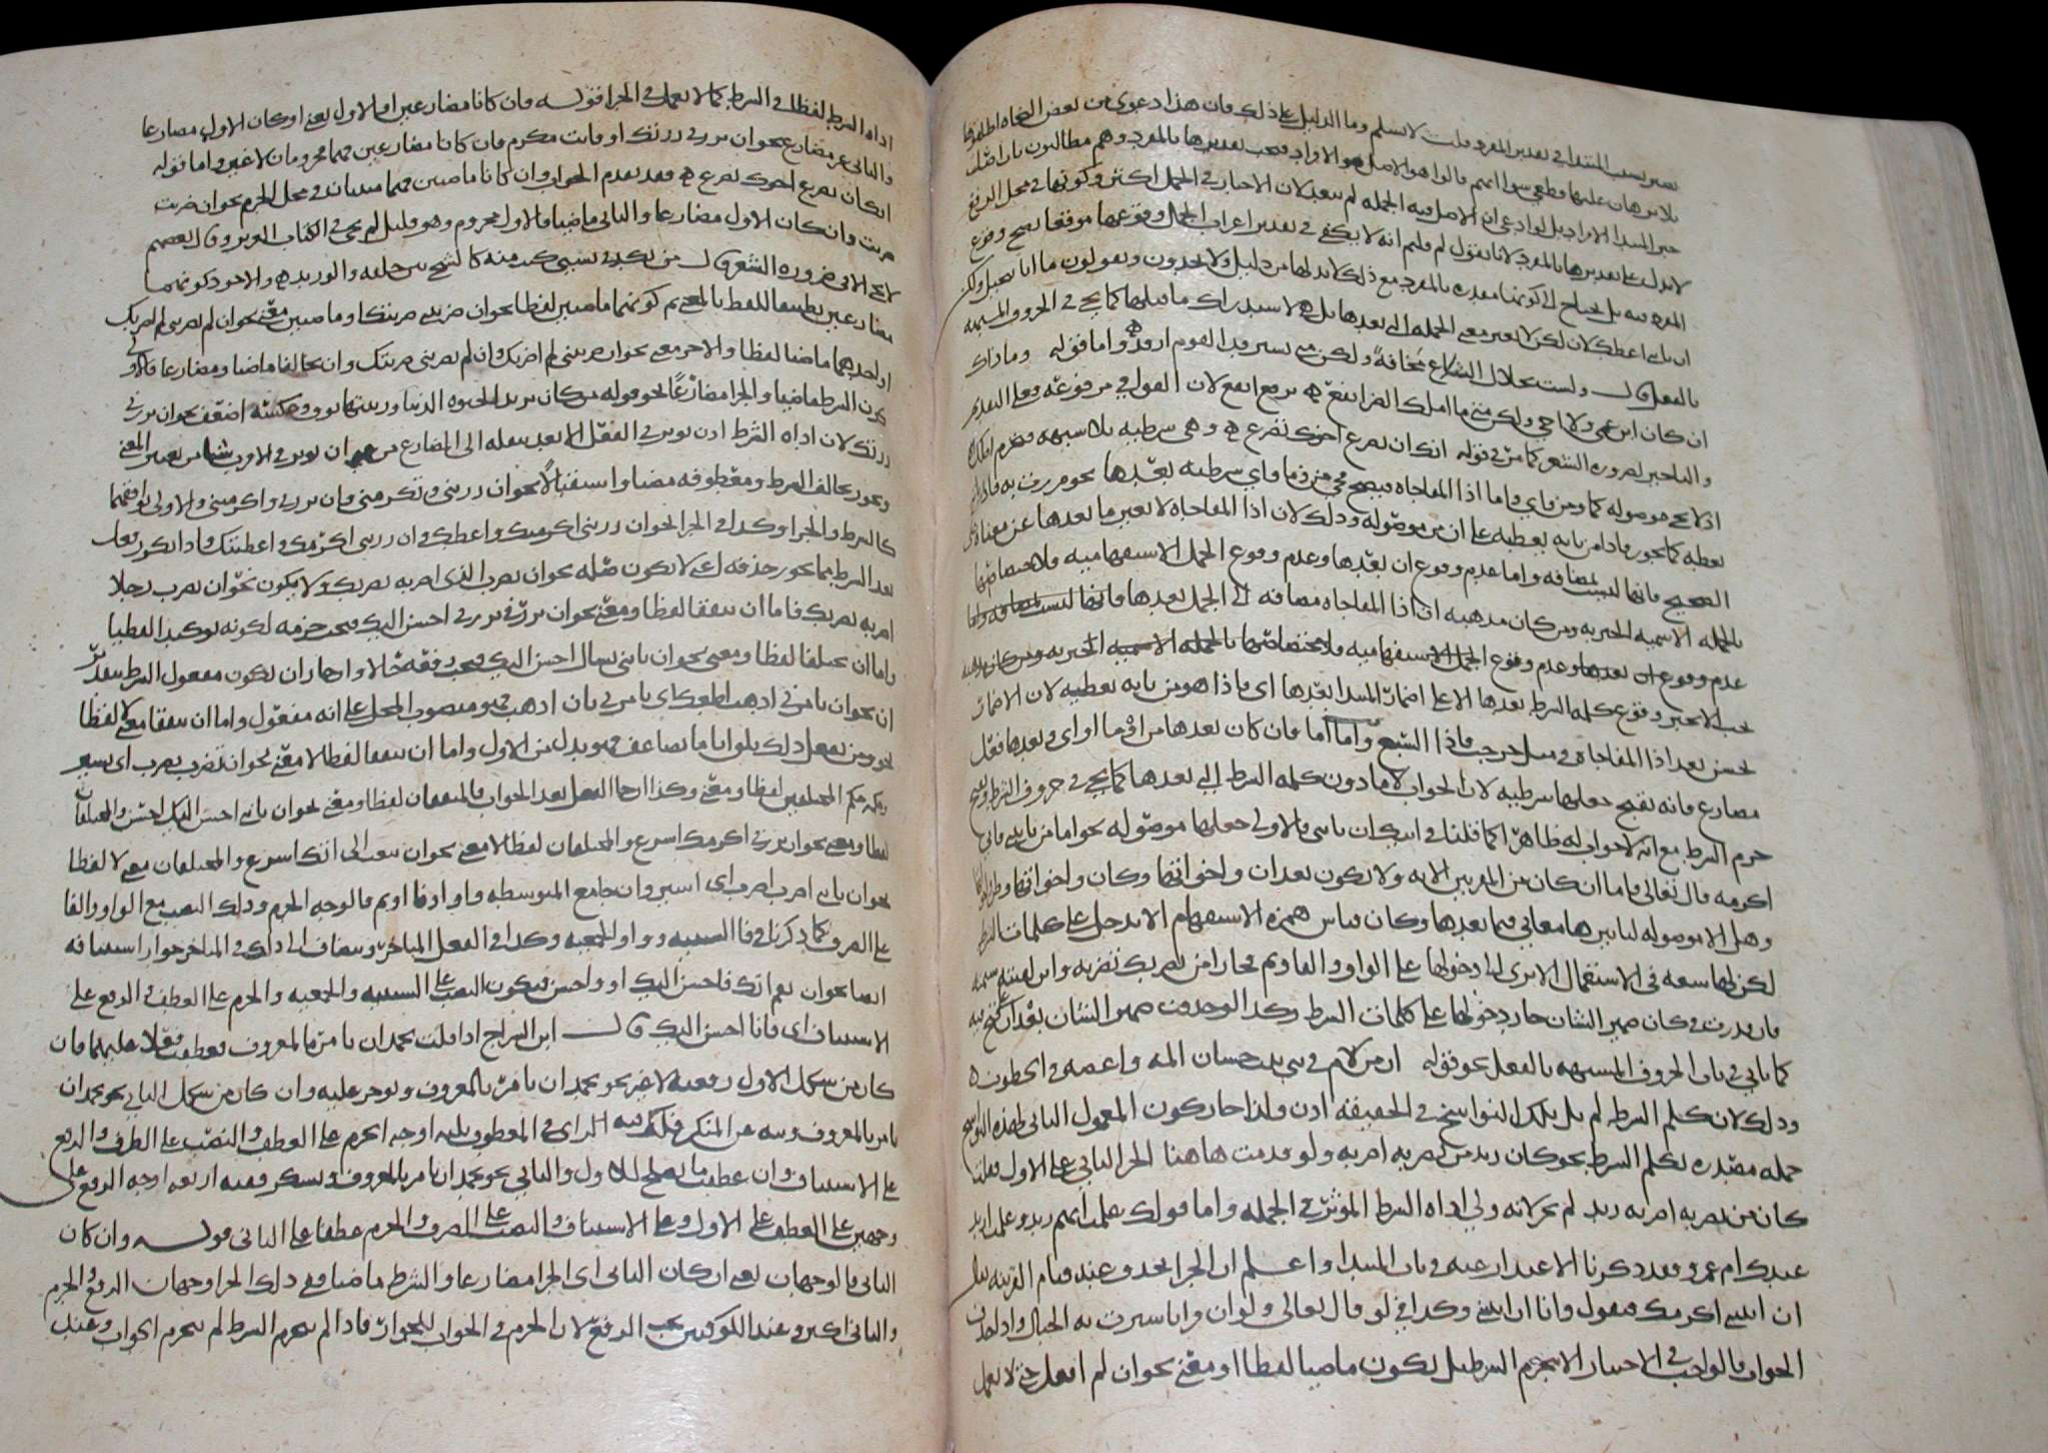 بصير بسبب المبتدا في تقدير المفرد قلت لا نسلم وما الدليل على ذلك فان هذا دعوى من بعض النحاه اطلقوها
بلا برهان عليها قطعي سوى انهم قالوا هو الاصل هو الافراد فيجب تقديرها بالمفرد وهم مطالبون بان اصل
خبر المبتدا الافراد بل لو ادعي ان الاصل فيه الجمله لم يبعد لان الاخبار في الجمل اكثر وكونها في محل الرفع
لا يدل على تقديرها بالمفرد لانا نقول لم قلتم انه لا يكفي في تقدير اعراب الجمل وقوعها موقعا يصح وقوع
المفرد فيه بل يحتاج الى كونها مقدره بالمفرد مع ذلك لابد لهذا من دليل ولا يجدون ويقولون ما انا ببخيل ولكن
ان ياتني اعطك لان لكن لا تغير معنى الجمله التي بعدها بل هي لاستدراك ما قبلها كما يجي في الحروف المشبهه
بالفعل قال ولست بحلال التلاع مخافة ولكن متى يسترفد القوم ارفد واما قوله وما ذاك
ان كان ابن عمي ولا اخي ولكن متى ما املك الضر انفع برفع انفع لان القوافي مرفوعه فعلى التقديم
والتاخير لضروره الشعر كما مر في قوله انك ان يصرع اخوك تصرع وهي شرطيه بلا شبهه
اذ لا تجي موصوله كما ومن واي واما اذا المفاجاه فيصح مجي من وما واي شرطيه بعدها نحو مررت به فاذا
يعطيه كما يجوز فاذا من ياته يعطيه على ان من موصوله وذلك لان اذا المفاجاه لا تغير ما بعدها عن معناه
الصحيح فانها ليست بمضافه واما عدم وقوع ان بعدها وعدم وقوع الجمل الاستفهاميه فلاختصاصها
بالجمله الاسميه الخبريه ومن كان مذهبه ان اذا المفاجاه مضافه الى الجمل بعدها فانها ليست بمضافه واما
عدم وقوع ان بعدها وعدم وقوع الجمل الاستفهاميه فلاختصاصها بالجمله الاسميه الخبريه ومن كان مذهبه
يجب الا يجيز وقوع كلمه الشرط بعدها الا على اضمار المبتدا بعدها اي فاذا هو من ياته يعطيه لان الاضمار
يحسن بعد اذا المفاجاه في مثل خرجت فاذا السبع واما اما فان كان بعدها من او ما او اي وبعدها فعل
مضارع فانه يقبح جعلها شرطيه لان الجواب لاما دون كلمه الشرط التي بعدها كما يجي في حروف الشرط ويقبح
جزم الشرط مع انه لا جواب له ظاهرا كما قلنا في اتيك ان تاتني فالاولى جعلها موصوله نحو اما من ياتيني فاني
اكرمه قال تعالى فاما ان كان من المقربين الايه ولا يكون بعد ان واخواتها وكان واخواتها
وهل الا موصوله لتاثيرها معاني فيما بعدها وكان قياس همزه الاستفهام الا تدخل على كلمات الشرط
لكن لها سعه في الاستعمال الا ترى الى دخولها على الواو والفا وثم فجاز امن يضربك تضربه وائن لقيته شتمه
فان قدرت في كان ضمير الشان جاز دخولها على كلمات الشرط وكذا لو حذفت ضمير الشان بعد ان
كما ياتي في باب الحروف المشبهه بالفعل نحو قوله ان من لام في بني بنت حسان المه واعصه في الخطوب
وذلك لان كلم الشرط لم يل تلك النواسخ في الحقيقه اذن ولذا جاز كون المعمول الثاني لهذه النواسخ
جمله مصدره بكلم الشرط نحو كان زيد من يضربه اضربه ولو قدمت هاهنا الجزا الثاني على الاول فقلت
كان من يضربه اضربه زيد لم يجز لانه ولي اداه الشرط المؤثر في الجمله واما قولك علمت ايهم زيد وعلمت ازيد
عندك ام عمرو فقد ذكرنا الاعتذار عنه في باب المبتدا واعلم ان الجزا يحذف عند قيام القرينه يقال
ان اتيتني اكرمك فتقول وانا ان اتيتني وكذا في لو قال تعالى ولو ان قرانا سيرت به الجبال واذا حذف
الجواب فالواجب في الاختيار الا ينجزم الشرط بل يكون ماضيا لفظا او معنى نحو ان لم افعل حتى لا تعمل
اداه الشرط لفظا في الشرط كما لا تعمل في الجزا قوله فان كانا مضارعين او الاول يعني او كان الاول مضارعا
والثاني غير مضارع نحو ان تزرني زرتك او فانت مكرم فان كانا مضارعين فهما مجزومان لا غير واما قوله
انك ان يصرع اخوك تصرع فقد تقدم الجواب وان كانا ماضيين فهما مبنيان في محل الجزم نحو ان ضربت
ضربت وان كان الاول مضارعا والثاني ماضيا فالاول مجزوم وهو قليل لم يجي في الكتاب العزيز وقال بعضهم
لا يجي الا في ضروره الشعر قال من يكدني بسيئ كنت منه كالشجى بين حلقه والوريد والاجود كونهما
مضارعين تطبيقا للفظ بالمعنى ثم كونهما ماضيين لفظا نحو ان ضربت ضربتك او ماضيين معنى نحو ان لم تضربني لم اضربك
او احدهما ماضيا لفظا والاخر معنى نحو ان ضربتني لم اضربك وان لم تضربني ضربتك وان تخالفا ماضيا ومضارعا فالاولى
كون الشرط ماضيا والجزا مضارعا نحو قوله من كان يريد الحياه الدنيا وزينتها نوف وعكسه اضعف نحو ان تزرني
زرتك لان اداه الشرط اذن تؤثر في الفعل الابعد بنقله الى المضارع من غير ان تؤثر في الاقرب شيا من تغيير المعنى
ويجوز تخالف الشرط ومعطوفه مضيا واستقبالا نحو ان زرتني وتكرمني وان تزرني واكرمتني والاولى توافقهما
كالشرط والجزا وكذا في الجزا نحو ان زرتني اكرمتك واعطك وان زرتني اكرمك واعطيتك واذا تكرر فعل
بعد الشرط مما يجوز حذفه اي لا يكون صله نحو ان تضرب الذي اضربه نضربك ولا يكون نحو ان تضرب رجلا
اضربه نضربك فاما ان يتفقا لفظا ومعنى نحو ان تزرني تزرني احسن اليك فيجب جزمه لكونه توكيدا لفظيا
واما ان يختلفا لفظا ومعنى نحو ان تاتني تسال احسن اليك فيجب رفعه حالا واجاز ان يكون مفعول الشرط بتقدير
ان نحو ان تامرني اذهب اطعك اي تامرني بان اذهب فهو منصوب المحل على انه مفعول واما ان يتفقا معنى لا لفظا
نحو ومن يفعل ذلك يلق اثاما يضاعف فهو بدل من الاول واما ان يتفقا لفظا لا معنى نحو ان تضرب تضرب اي تسير
وحكمه حكم المختلفين لفظا ومعنى وكذا ان جا الفعل بعد الجواب فالمتفقان لفظا ومعنى نحو ان تاتني احسن اليك احسن والمختلفان
لفظا ومعنى نحو ان تزرني اكرمك اسرع والمختلفان لفظا لا معنى نحو ان تبعث الي اتك اسرع والمختلفان معنى لا لفظا
نحو ان تاتني اضرب اضرب اي اسير وان جامع المتوسطه واو او فا او ثم فالوجه الجزم وذلك النصب مع الواو والفا
على الصرف كما ذكرنا في فا السببيه وواو الجمعيه وكذا في الفعل المتاخر ويضاف الى ذلك في المتاخر جواز استئنافه
ايضا نحو ان تقم اتك فاحسن اليك او واحسن فيكون النصب على السببيه والجمعيه والجزم على العطف والرفع على
الاستئناف اي فانا احسن اليك قال ابن السراج اذا قلت تحمد ان تامر بالمعروف فعطفت فعلا عليهما فان
كان من شكل الاول رفعته لا غير نحو تحمد ان تامر بالمعروف وتؤجر عليه وان كان من شكل الثاني نحو تحمد ان
تامر بالمعروف وتنه عن المنكر فلك فيه اي في المعطوف ثلثه اوجه الجزم على العطف والنصب على الصرف والرفع
على الاستئناف وان عطفت ما يصلح للاول والثاني نحو تحمد ان تامر بالمعروف وتشكر ففيه اربعه اوجه الرفع على
وجهين على العطف على الاول وعلى الاستئناف والنصب على الصرف والجزم عطفا على الثاني قوله وان كان
الثاني فالوجهان يعني ان كان الثاني اي الجزا مضارعا والشرط ماضيا ففي ذلك الجزا وجهان الرفع والجزم
والثاني اكثر وعند الكوفيين يجب الرفع لان الجزم في الجواب للجوار فاذا لم ينجزم الشرط لم ينجزم الجواب وعند